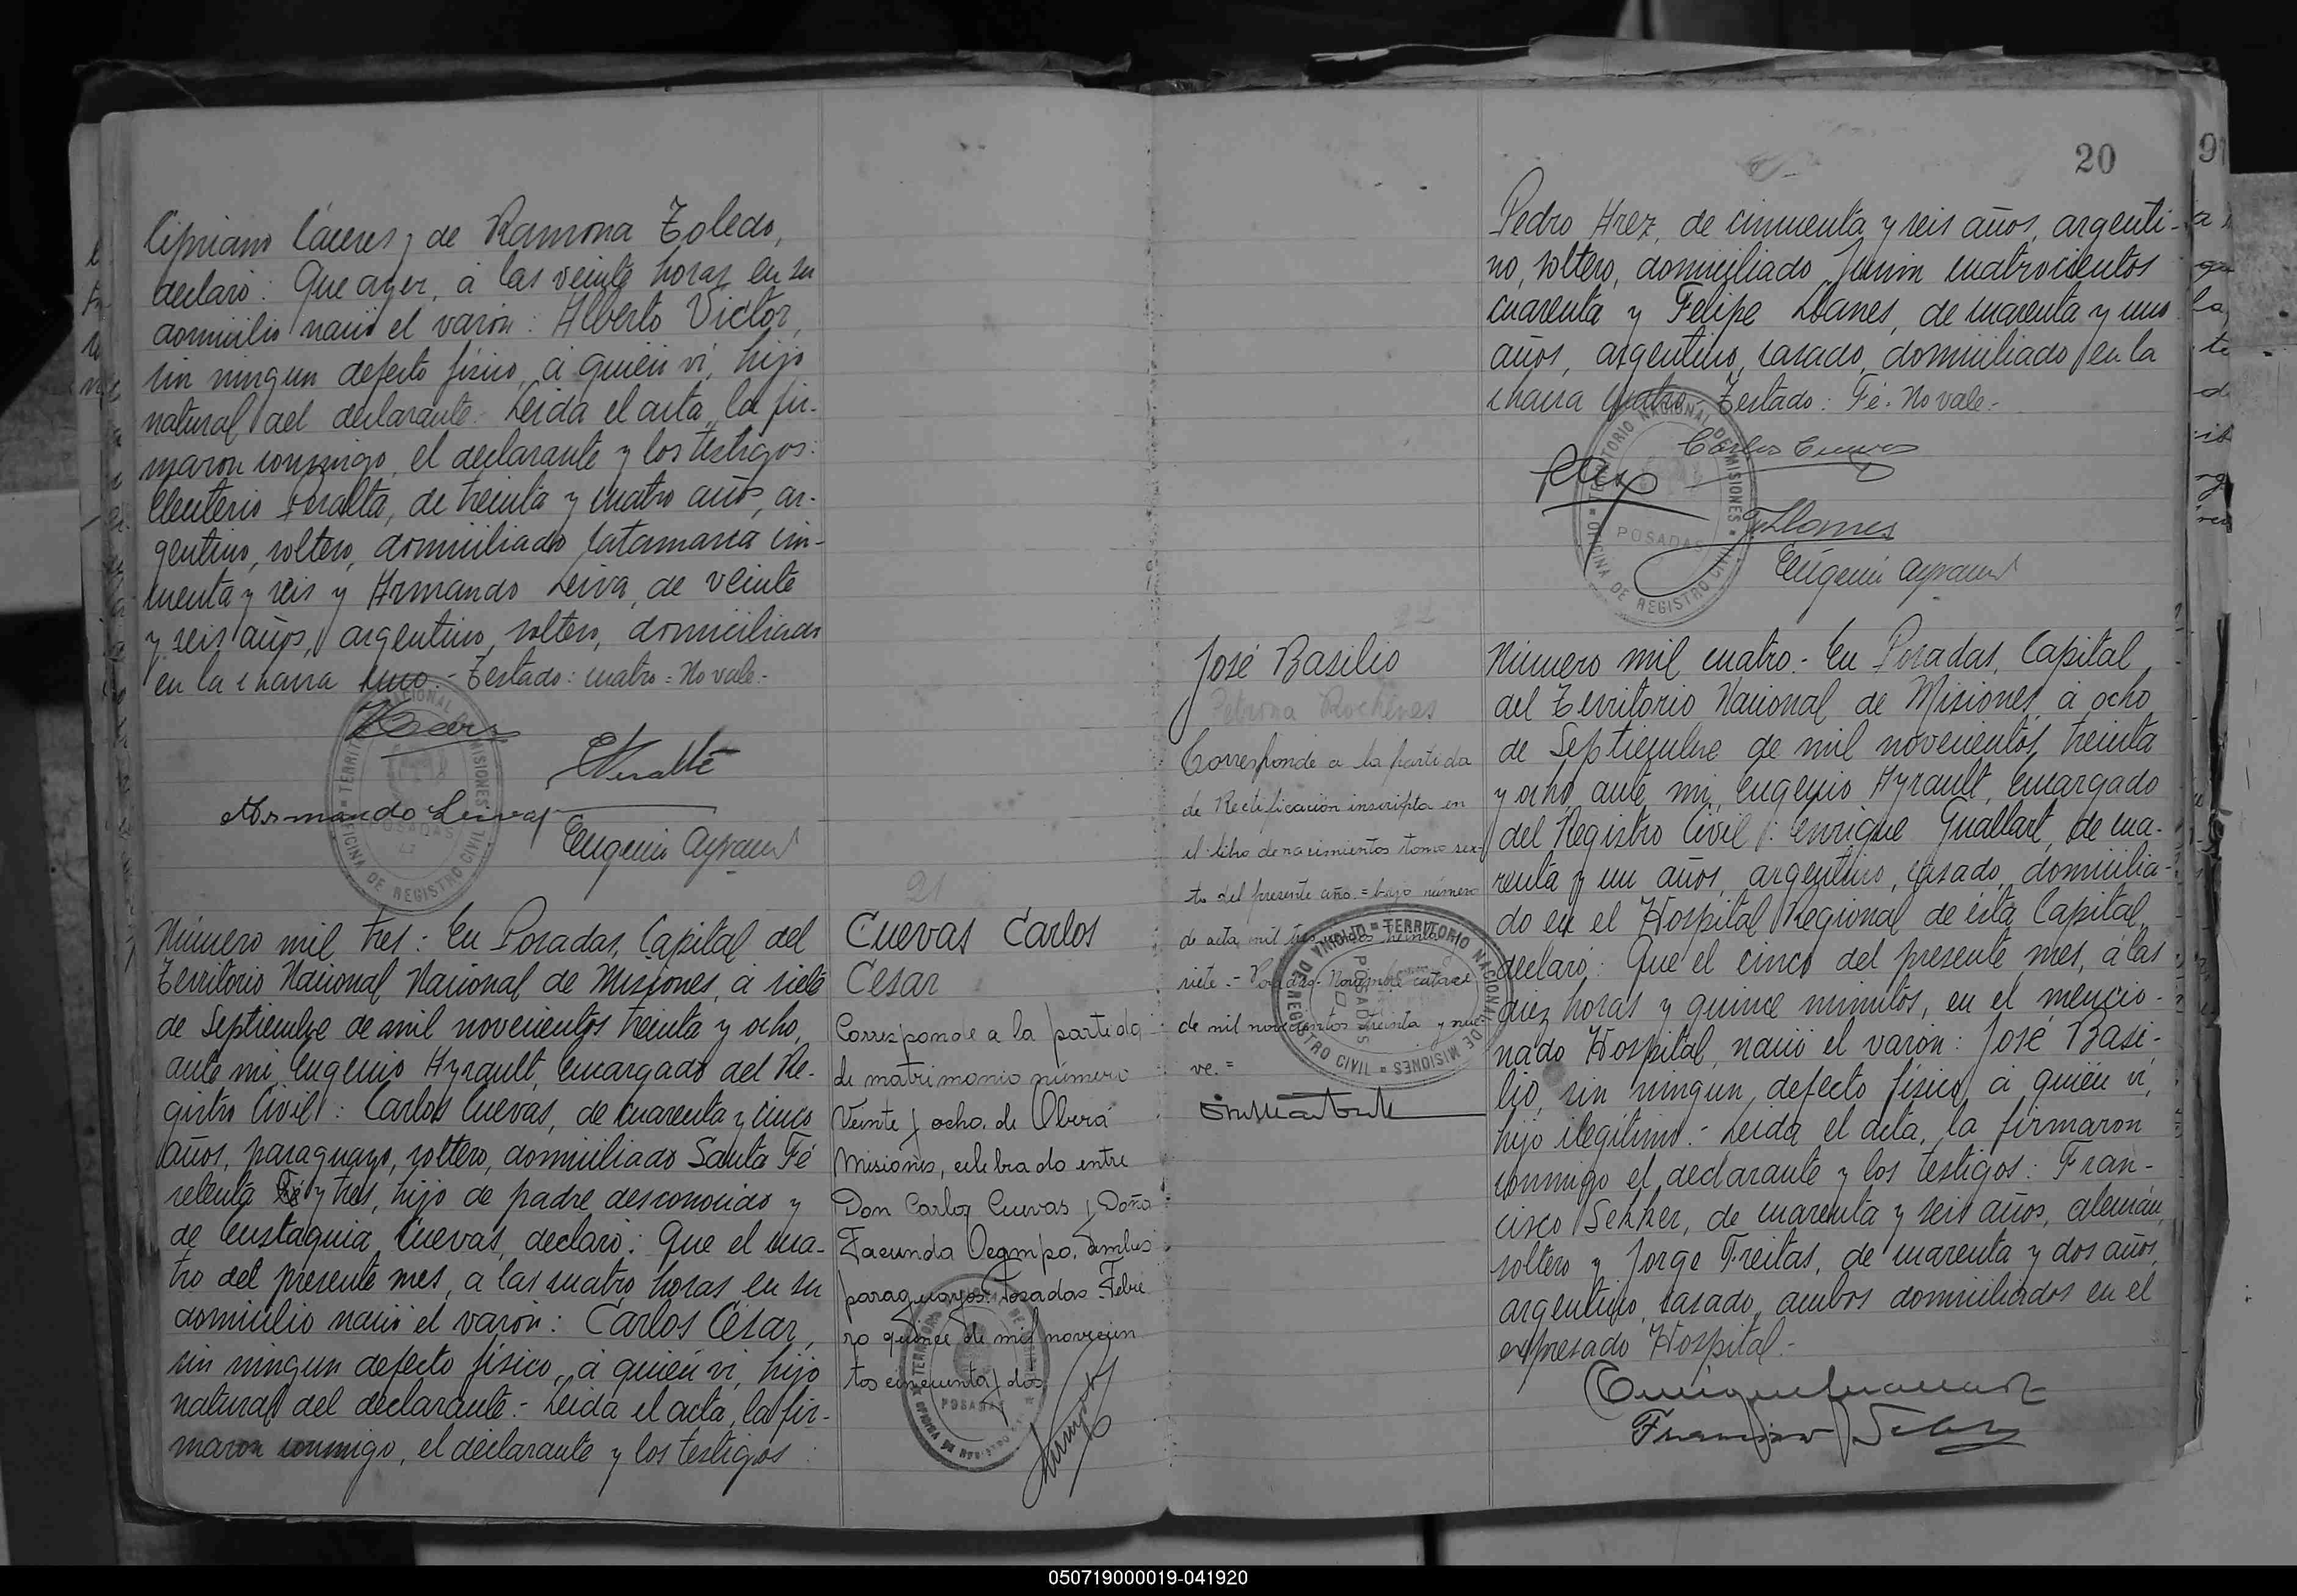 Cipriano Cáceres y de Ramona Toledo,
declaró: Que ayer, á las veinte horas en su
domicilio nació el varón: Alberto Victor,
sin ningun defecto físico, á quién ví, hijo
natural del declarante. Leida el acta, la fir-
maron conmigo, el declarante y los testigos:
Eleuterio Peralta, de treinta y cuatro años, ar-
gentino, soltero, domiciliado Catamarca cin-
cuenta y seis y Armando Leiva, de veinte
y seis años, argentino, soltero, domiciliado
en la chacra uno.- Testado: cuatro = No vale.-
EPeralta
Armando Leiva
Eugenio Ayrault
TERRITORIO NACIONAL DE MISIONES
POSADAS
OFICINA DE REGISTRO CIVIL
21
Número mil tres: En Posadas, Capital del
Territorio Nacional Nacional de Misiones, á siete
de Septiembre de mil novecientos treinta y ocho,
ante mi, Eugenio Ayrault, Encargado del Re-
gistro Civil: Carlos Cuevas, de cuarenta y cinco
años, paraguayo, soltero, domiciliado Santa Fé
setenta y tres, hijo de padre desconocido y
de Eustaquia Cuevas, declaró: Que el cua-
tro del presente mes, a las cuatro horas en su
domicilio nació el varón: Carlos César,
sin ningun defecto físico, á quién ví, hijo
natural del declarante.- Leida el acta, la fir-
maron conmigo, el declarante y los testigos:
Cuevas Carlos
Cesar
Corresponde a la partida
de matrimonio número
Veinte y ocho. de Oberá
Misiones, celebrado entre
Don Carlos Cuevas y Doña
Facunda Ocampo, ambos
paraguayos. Posadas Febre
ro quince de mil novecien
tos cincuenta y dos
POSADAS
20
Pedro Arez, de cincuenta y seis años, argenti-
no, soltero, domiciliado Junin cuatrocientos
cuarenta y Felipe Llanes, de cuarenta y uno
años, argentino, casado, domiciliado en la
chacra cuatro.- Testado: Fé. No vale.-
Carlos Cuevas
FLlanes
Eugenio Ayrault
TERRITORIO NACIONAL DE MISIONES
POSADAS
OFICINA DE REGISTRO CIVIL
22
José Basilio
Petrona Rochinas
Corresponde a la partida
de Rectificación inscripta en
el libro de nacimientos tomo sex-
to del presente año = bajo número
de acta mil trescientos treinta
siete.- Posadas. Noviembre catorce
de mil novecientos treinta y nue-
ve.=
OFICINA DE REGISTRO CIVIL
TERRITORIO NACIONAL DE MISIONES
POSADAS
Número mil cuatro.- En Posadas, Capital
del Territorio Nacional de Misiones, á ocho
de Septiembre de mil novecientos treinta
y ocho, ante mi, Eugenio Ayrault, Encargado
del Registro Civil: Enrique Guallart, de cua-
renta y un años, argentino, casado, domicilia-
do en el Hospital Regional de ésta Capital,
declaró: Que el cinco del presente mes, á las
diez horas y quince minutos, en el mencio-
nado Hospital, nació el varón: José Basi-
lio, sin ningun defecto físico, á quién ví,
hijo ilegítimo.- Leida el acta, la firmaron
conmigo el declarante y los testigos: Fran-
cisco Sekker, de cuarenta y seis años, alemán,
soltero y Jorge Freitas, de cuarenta y dos años,
argentino, casado, ambos domiciliados en el
expresado Hospital.-
Enrique Guallart
Francisco
050719000019-041920